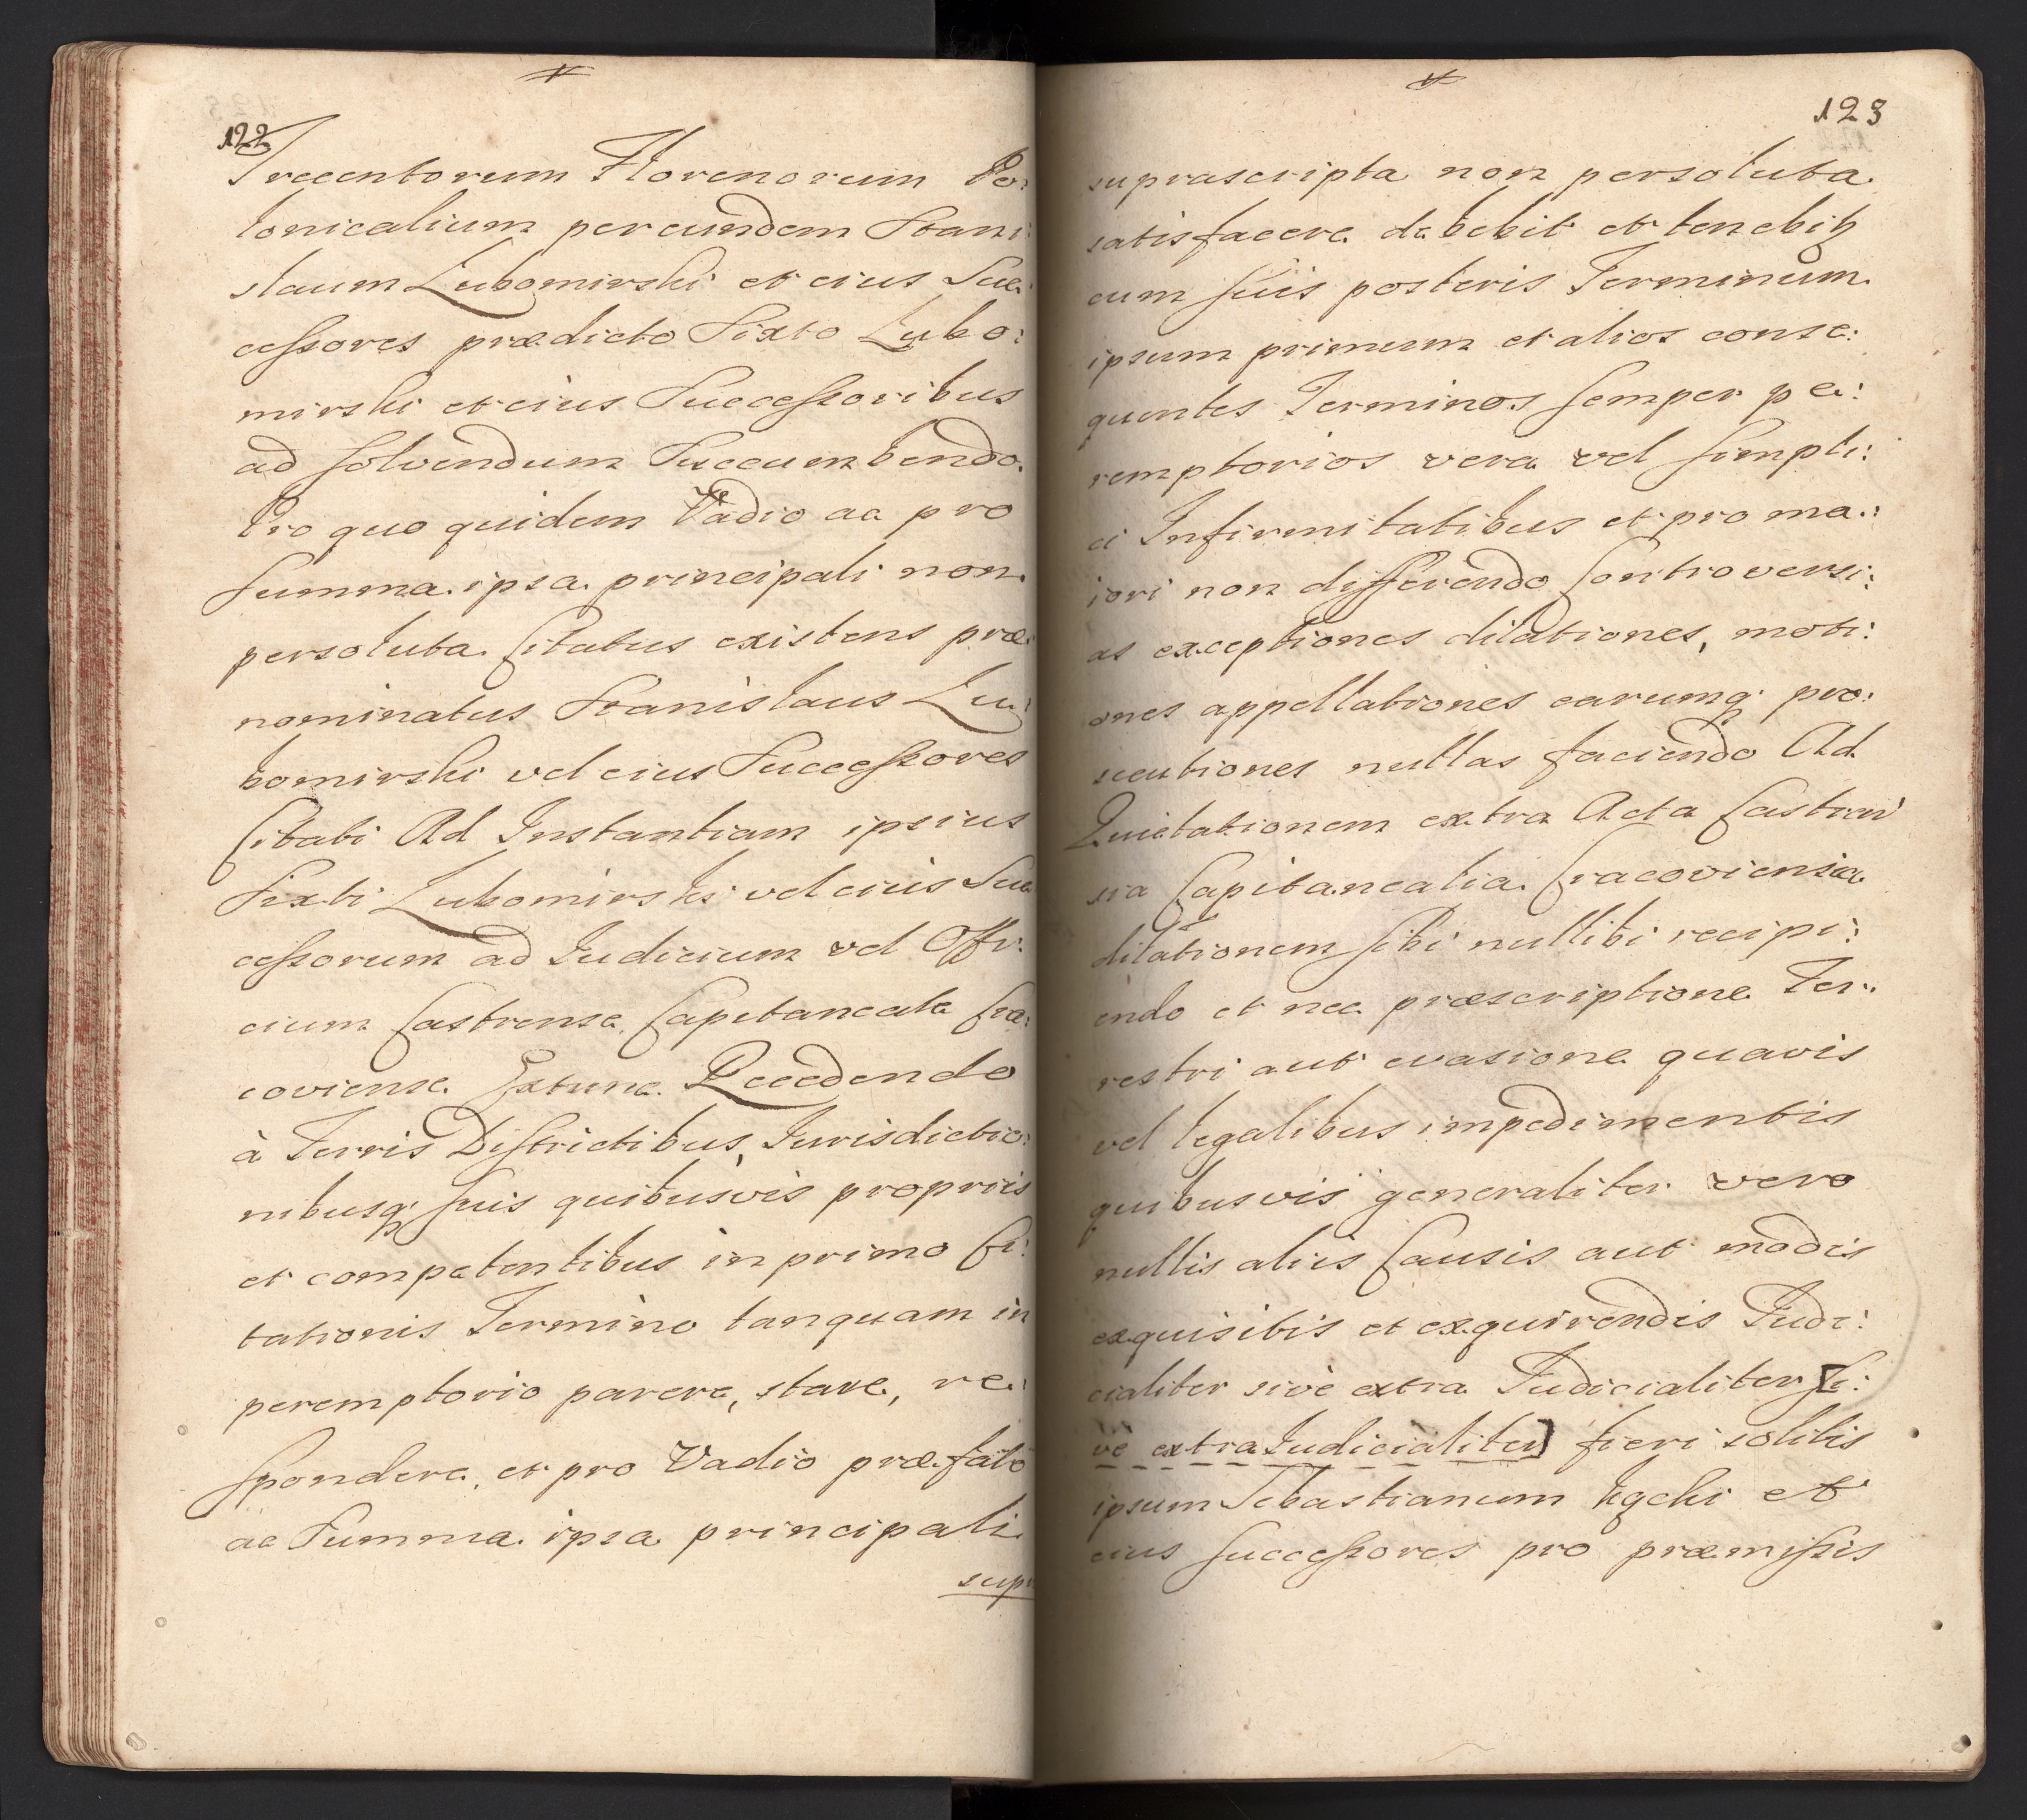 122
Trecentorum Florenorum Po:
lonicalium per eundem Stani:
slaum Lubomirski et eius Suc:
cessores prædicto Sixto Lubo:
mirski et eius Successoribus
ad solvendum succumbendo.
Pro quo quidem Vadio ac pro
summa ipsa principali non
persoluta Citatus existens præ:
nominatus Stanislaus Lu:
bomirski vel eius Successores
Citati Ad Instantiam ipsius
Sixti Lubomirski vel eius Suc
cessorum ad Iudicium vel Offi:
cium Castrense Capitaneale Cra:
coviense Extunc Recedendo
à Terris Districtibus, Iurisdictio:
nibusq; suis quibusvis propriis
et competentibus in primo Ci:
tationis Termino tanquam in
peremptorio parere, stare, re:
spondere, et pro Vadio præfato
ac Summa ipsa principali
sup
123
suprascripta non persoluta
satisfacere debebit et tenebitz
cum suis posteris Terminum
ipsum primum et alios conse:
quentes Terminos semper pe:
remptorios vera vel simpli:
ci Infirmitatibus et pro ma:
iori non differendo Controversi:
as exceptiones dilationes, moti:
ones appellationes earumq; pro:
secutiones nullas faciendo Ad
Quietationem extra Acta Castren
sia Capitanealia Cracoviensia
dilationem sibi nullibi recipi:
endo et nec præscriptione Ter:
restri aut evasione quavis
vel legalibus impedimentis
quibusvis generaliter vero
nullis aliis Causis aut modis
exquisitis et exquirendis Judi:
cialiter sivè extra Judicialiter [si:
vè extra Iudicialiter] fieri solitis
ipsum Sebastianum Kgehi et
eius successores pro præmissis